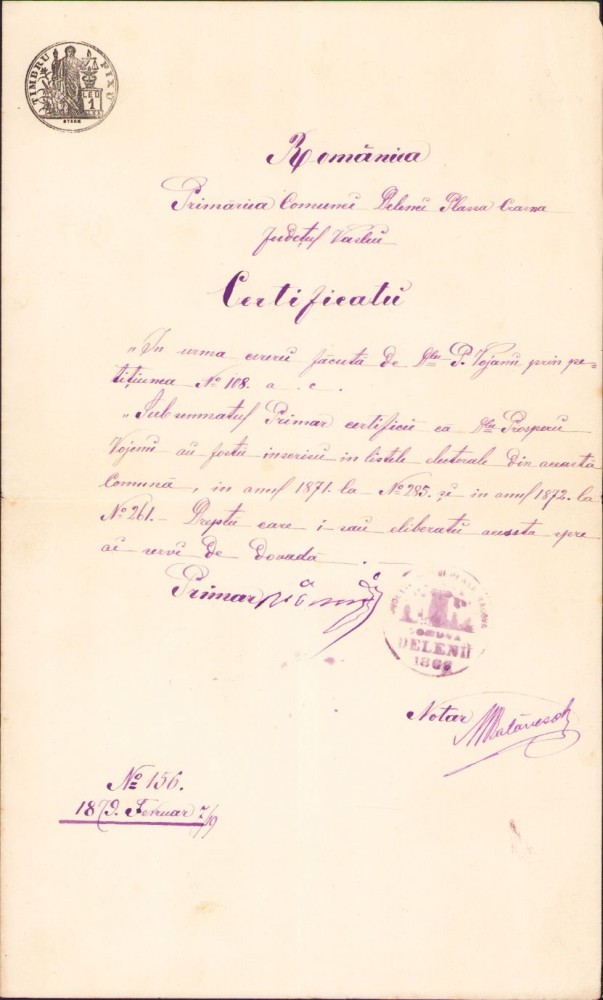 TIMBRU FIXŬ
LEU
1
România
Primăria Comunei Delenii Plassa Crasna
Județul Vasluiu
Certificatu
„In urma cererei făcută de Dlu P. Vojanu prin pe-
tițiunea No 108. a. c.
„Subsemnatul Primar certifică că Dlu Prosperu
Vojenu au fostu inscrisu in listele electorale din această
Comună, in anul 1871. la No 285. și in anul 1872. la
No 261.– Dreptu care i-sau eliberatu acesta spre
ai servi de Dovadă.–
Primar
COMUNA
DELENII
1866
Notar
No 156.
1879. Februar 7/9